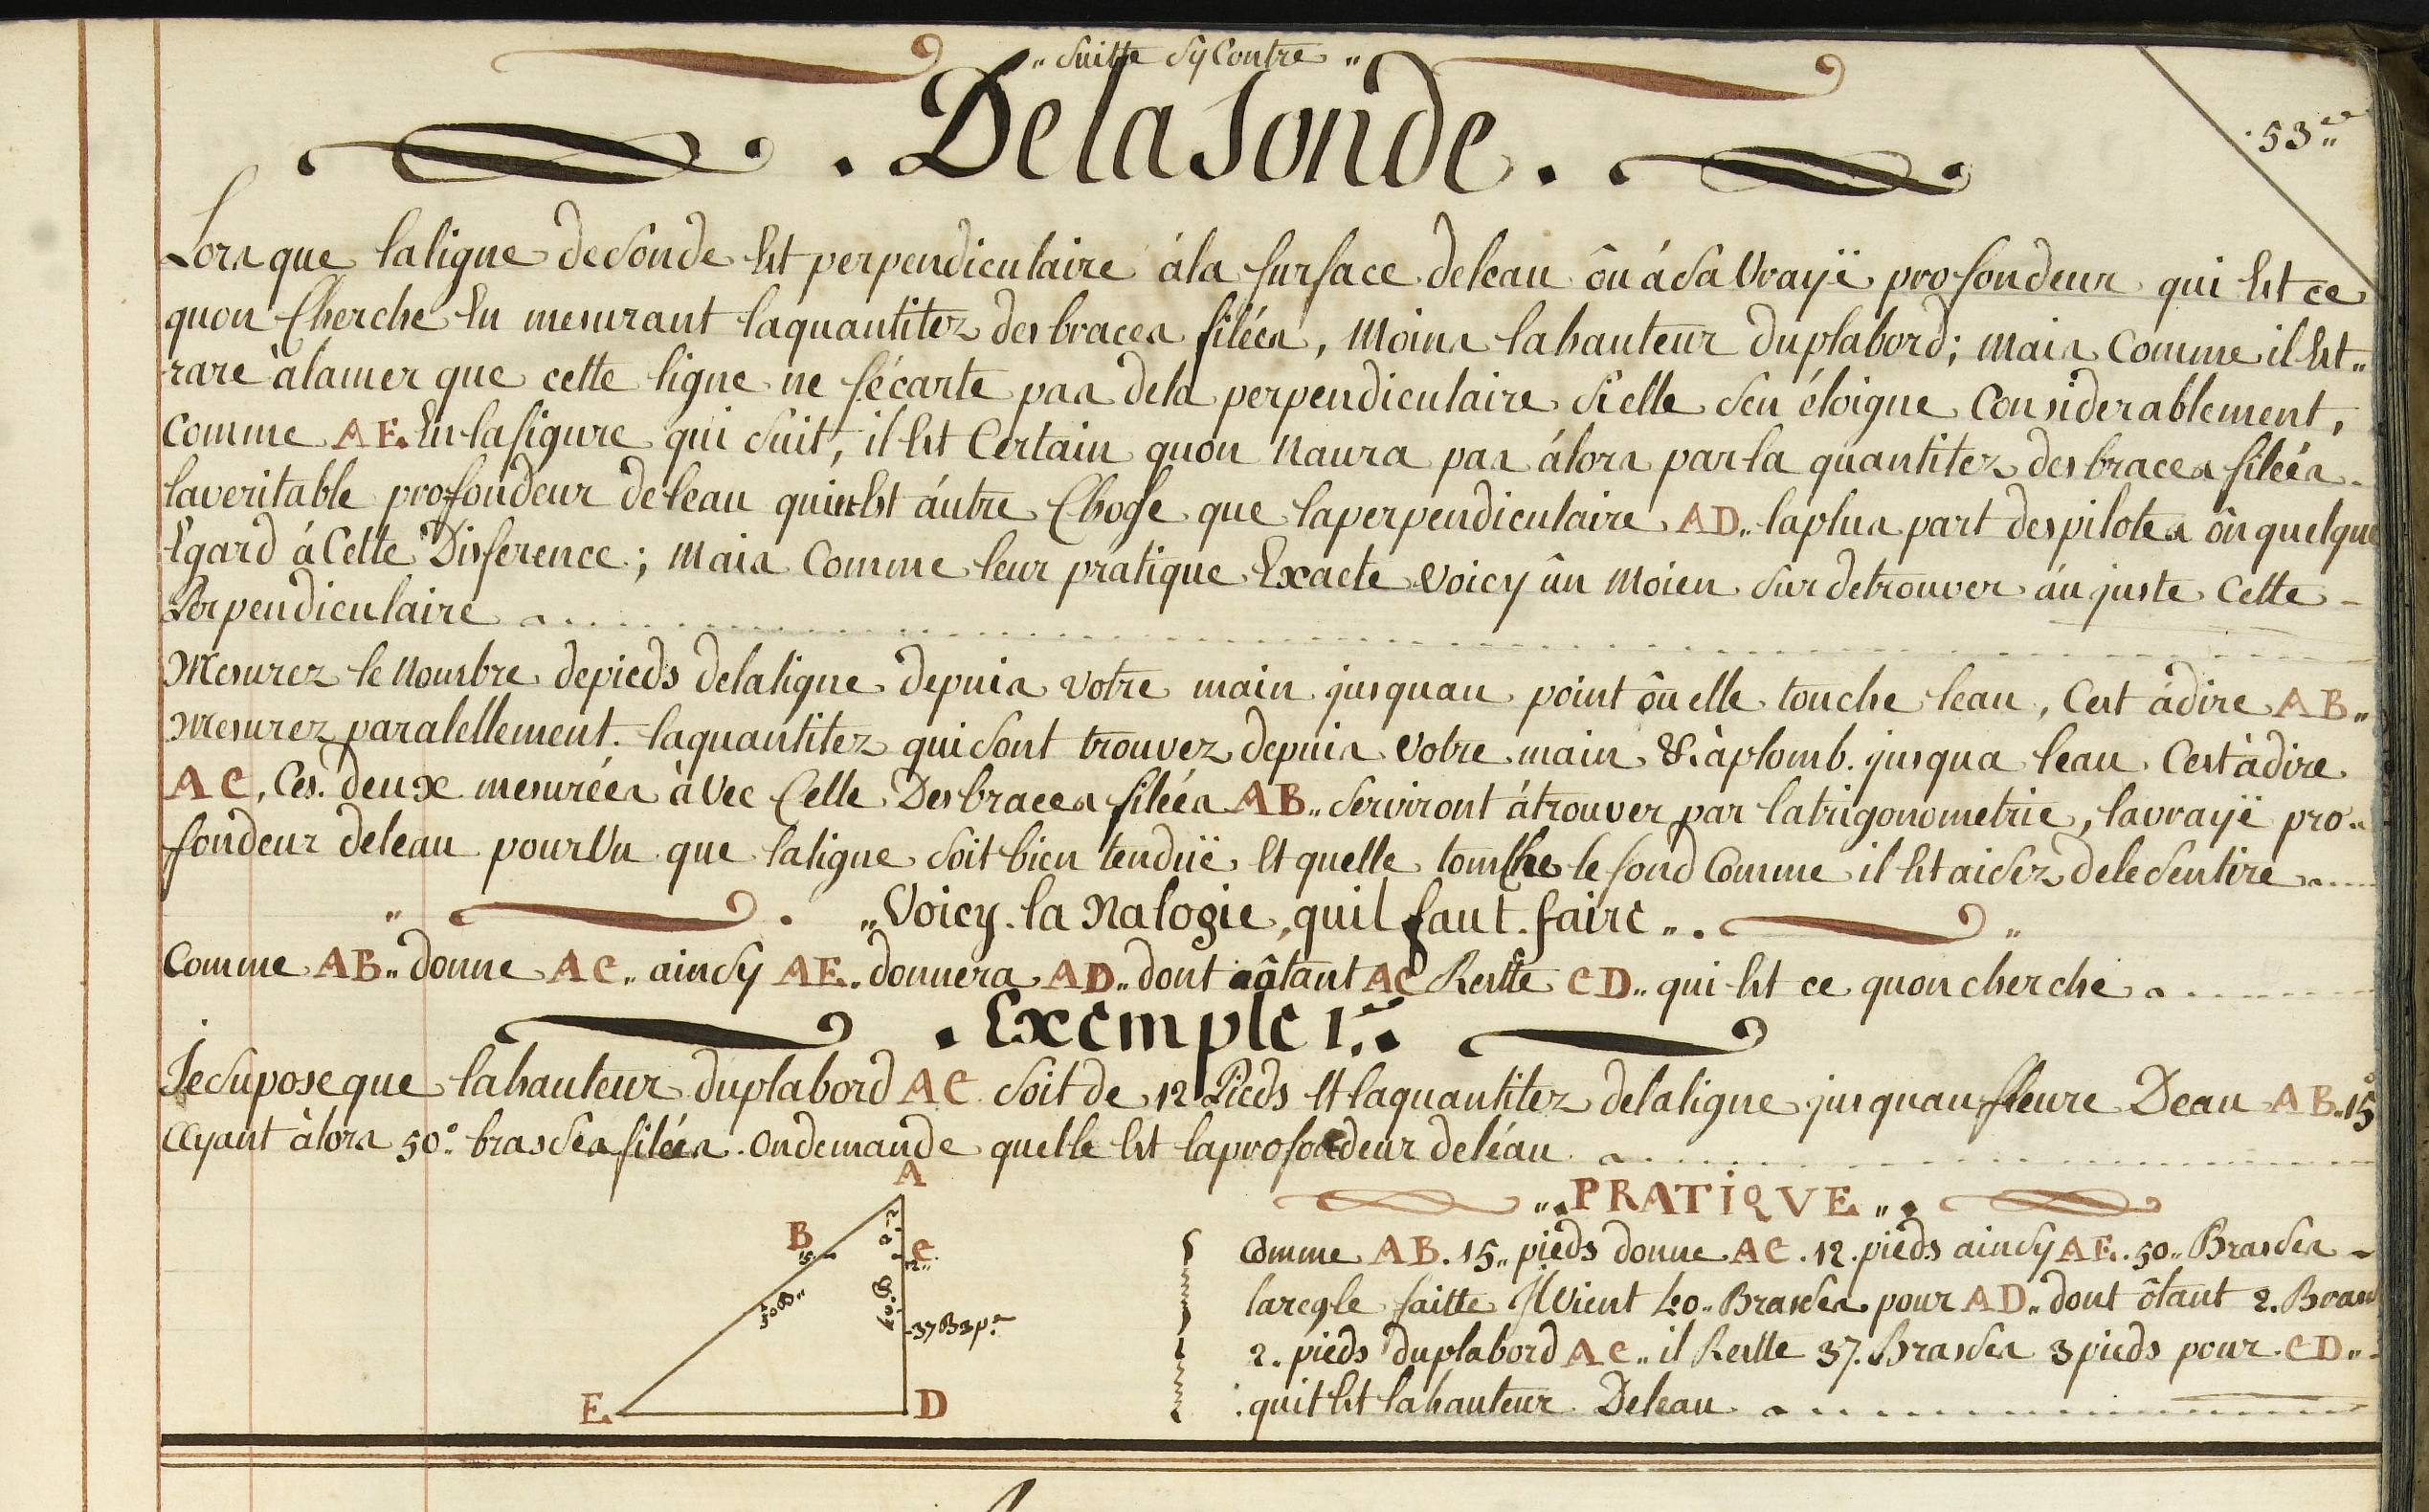 „ Suitte Sy Contre „
. De la Sonde .
53.e
Lors que la ligne de Sonde Est perpendiculaire á la surface de leau ôn á Sa Vrayë profondeur qui Est ce
quon Cherche En mesurant la quantitez des braces filées, Moins la hauteur du plabord; Mais Comme il Est „
rare à la mer que cette ligne ne sécarte pas de la perpendiculaire Si elle Sen éloigne Considerablement,
Comme AE. En la figure qui Suit, il Est Certain quon Naura pas álors par la quantitez des braces filéés.
la veritable profondeur de leau qui Est áutre Chose que la perpendiculaire AD„ la plus part des pilotes ôn quelque
Egard á Cette Disference ; Mais Comme leur pratique Exacte Voicy ûn Moien Sur de trouver áu juste Cette -
Perpendiculaire
Mesurez le Nombre de pieds de la ligne depuis Votre main jusquau point ôu elle touche leau, Cest àdire AB„
Mesurez paralellement. la quantitez qui Sont trouvez depuis Votre main & àplomb. jusqua leau. Cest àdire
AC, Ces. deux mesuréés àVec Celle Des braces filéés AB„ Serviront átrouver par la trigonometrie, la vrayë pro„
fondeur de leau pourVu que la ligne Soit bien tenduë Et quelle tomche le fond Comme il Est aisez de le Sentire
„ . „Voicy. la Nalogie, quil faut. faire „. „
Comme AB„ donne AC„ ainsy AE. donnera AD„ dont ôtant AC Restte CD„ qui Est ce quon cherche
. Exemple 1.er
Je Supose que la hauteur du plabord AC Soit de 12 Pieds Et la quantitez de la ligne jusquau fleure Deau AB„ 15
Ayant àlors 50„ brasses filéés. On demande quelle Est la profondeur de léau
„. PRATIQVE „.
Comme AB. 15„ pieds donne AC. 12. pieds ainsy AE. 50„ Brasses -
la regle faitte Il Vient 40„ Brasses pour AD„ dont ôtant 2. Bras
2. pieds du plabord AC„ il Restte 37. Brasses 3 pieds pour CD„
quit Est la hauteur De leau
A
B
15
C
12„
50 B„
40. B
37 B 3 p.s
E.
D